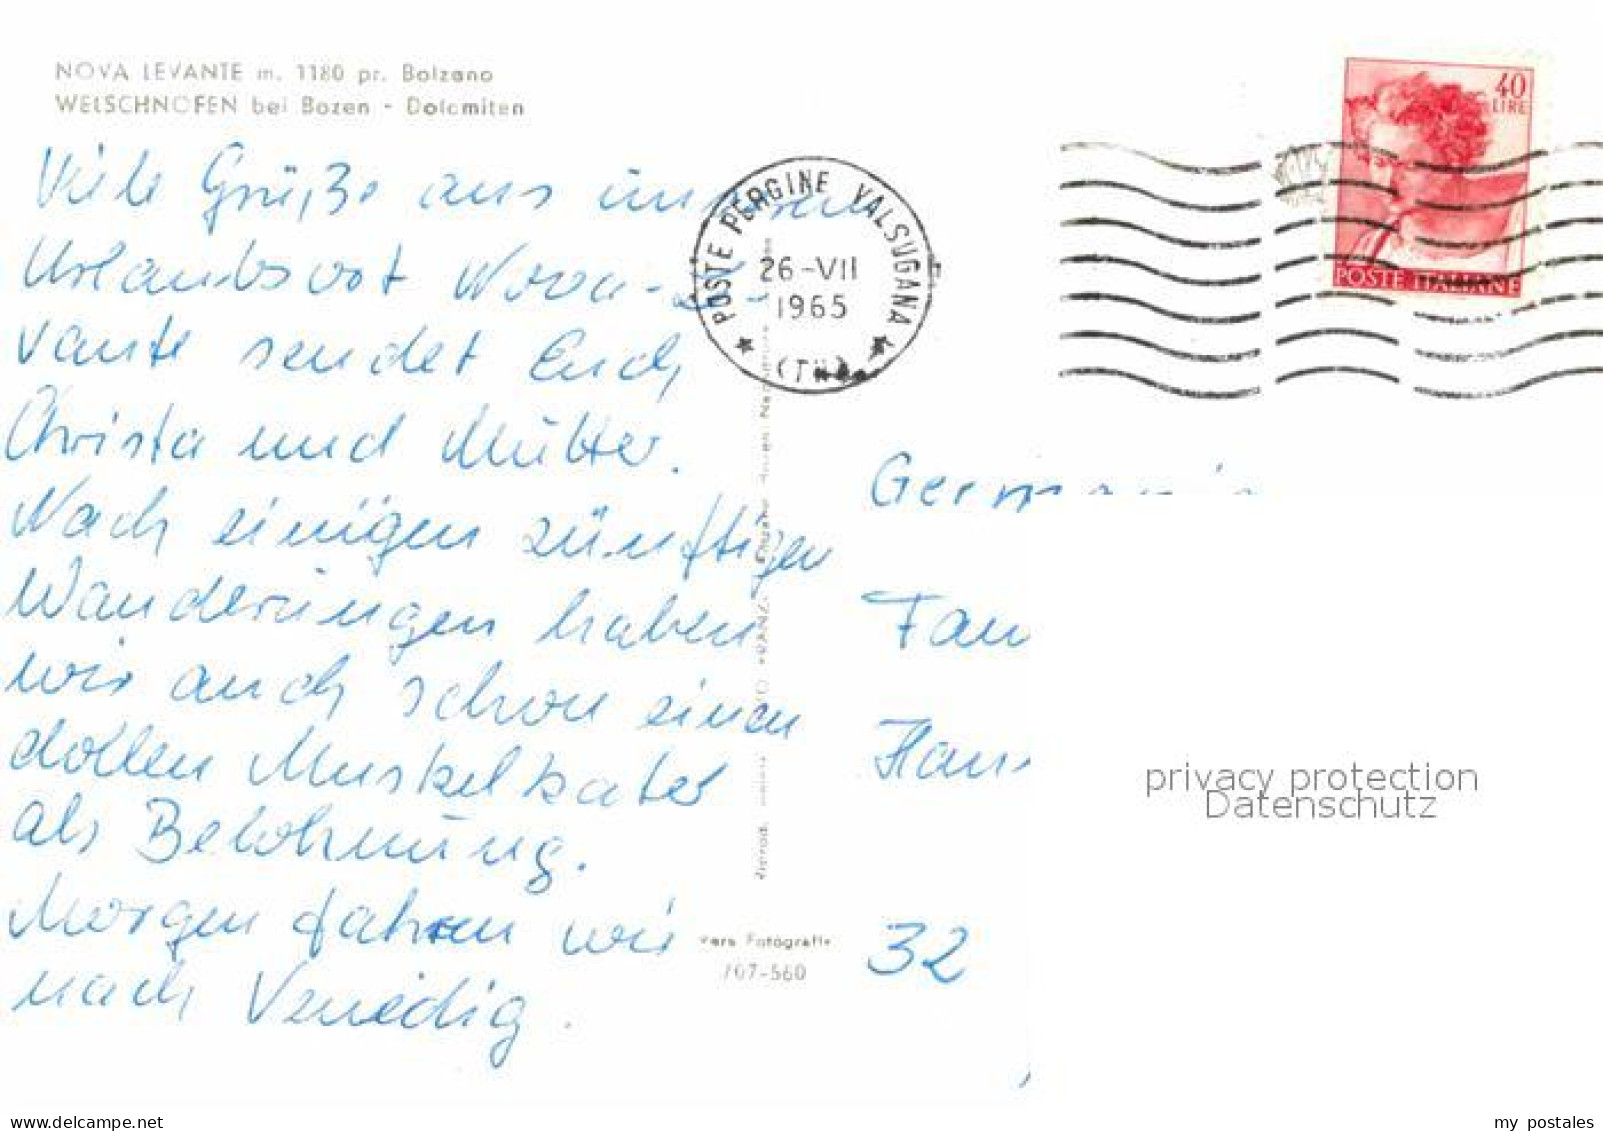 NOVA LEVANTE m. 1180 pr. Bolzano
WELSCHNOFEN bei Bozen - Dolomiten
Viele Grüße aus unserem
Urlaubsort Nova-Le-
vante sendet Euch
Christa und Mutter.
Nach einigen zünftigen
Wanderungen haben
wir auch schon einen
dollen Muskelkater
als Belohnung.
Morgen fahren wir
nach Venedig.
POSTE PERGINE VALSUGANA
26-VII
1965
(TN)
40
LIRE
POSTE ITALIANE
Germania
Fam
Hann
32
vera Fotografia
707-560
privacy protection
Datenschutz
delcampe.net
my postales